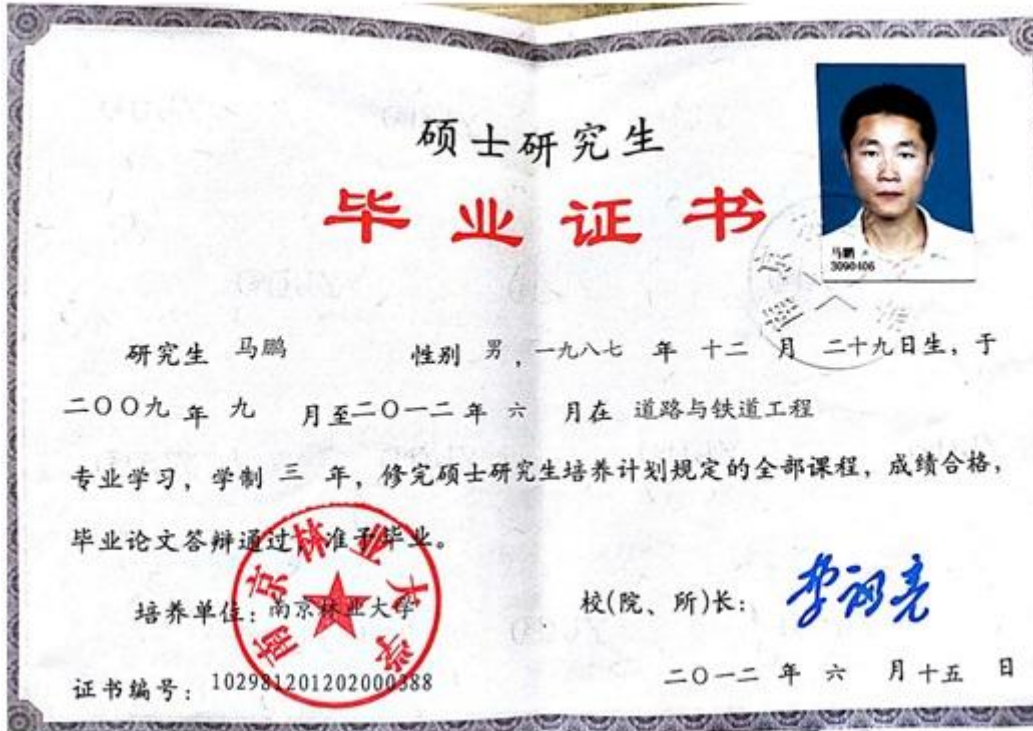 硕士研究生
毕业证书
马鹏
3090406
研究生 马鹏 性别 男,一九八七 年 十二 月 二十九日生,于
二〇〇九 年 九 月至二〇一二年 六 月在 道路与铁道工程
专业学习,学制 三 年,修完硕士研究生培养计划规定的全部课程,成绩合格,
毕业论文答辩通过,准予毕业。
南京林业大学
培养单位:南京林业大学 校(院、所)长:
证书编号:102981201202000388 二〇一二 年 六 月十五 日